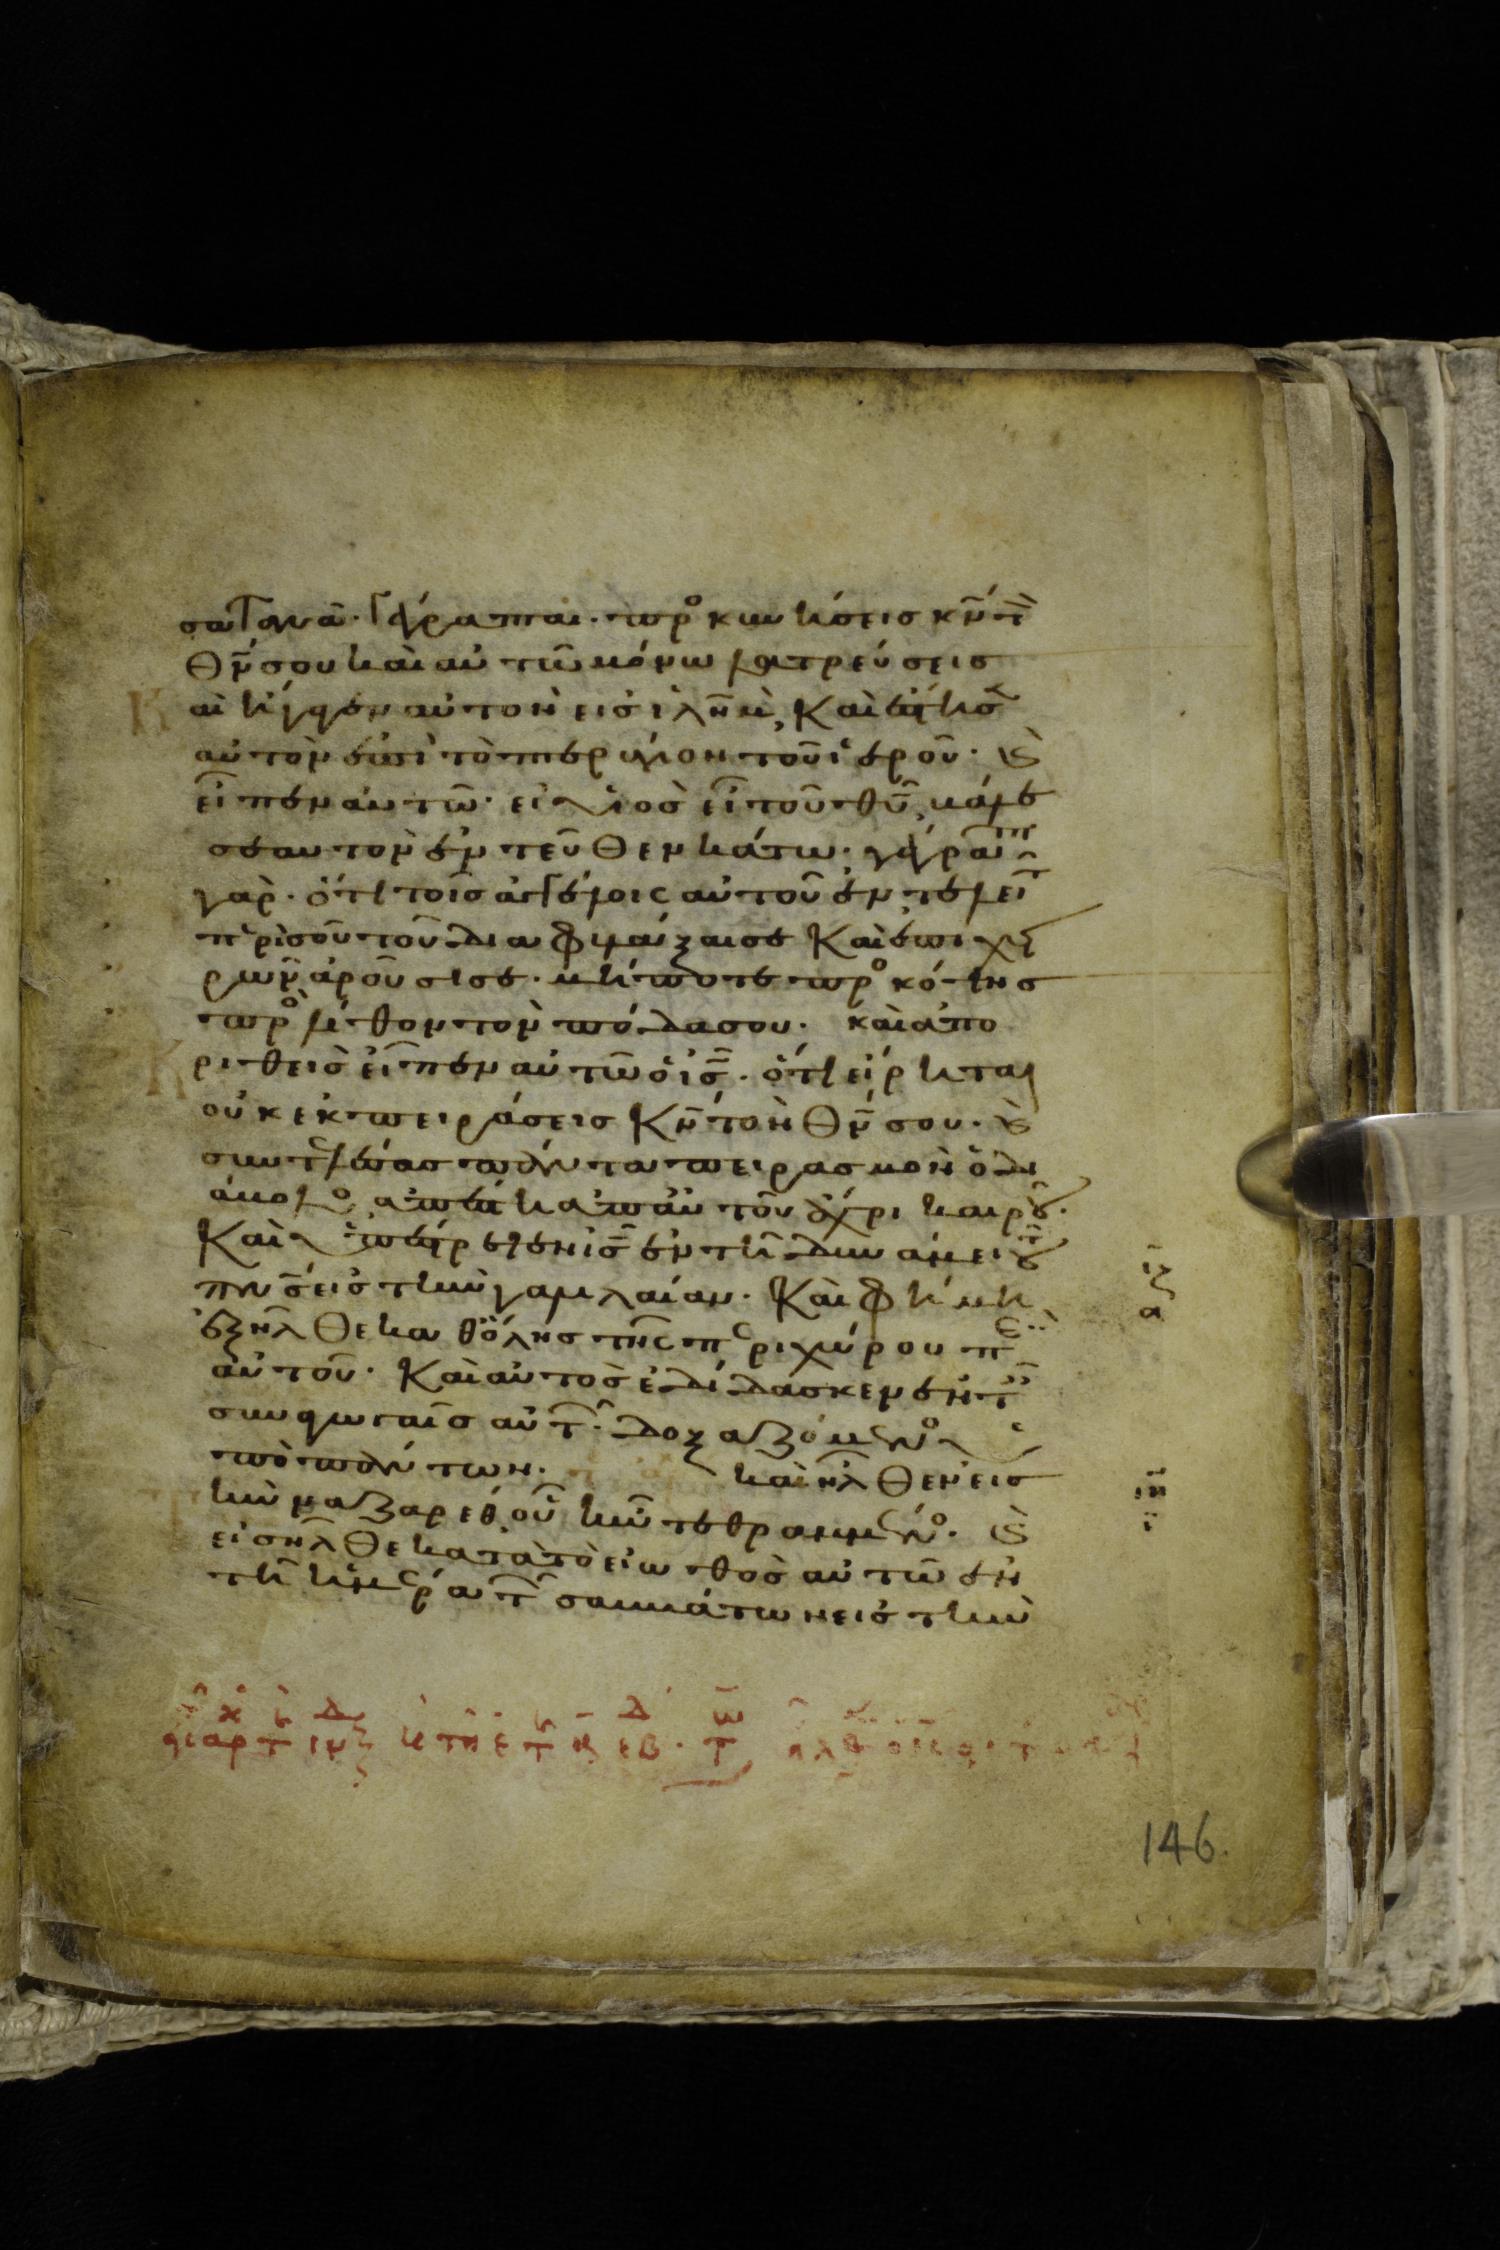 σατανᾶ· γέγραπται· προσκυνήσεις κν̄ τὸν
θν̄ σου καὶ αὐτῶ μόνω λατρεύσεις
Καὶ ἤγαγεν αὐτὸν εἰς ἰλῆμ, καὶ ἔστησεν
αὐτὸν ἐπὶ τὸ πτερύγιον τοῦ ἱεροῦ· καὶ
εἶπεν αὐτῶ· εἰ υἱὸς εἶ τοῦ θῡ, βάλε
σεαυτὸν ἐντεῦθεν κάτω· γέγραπται
γὰρ· ὅτι τοῖς ἀγγέλοις αὐτοῦ ἐντελεῖται
περὶ σοῦ τοῦ διαφυλάξαι σε καὶ ἐπὶ χει
ρῶν ἀροῦσι σε· μήποτε προσκόψης
πρὸς λίθον τὸν πόδα σου· καὶ ἀπο
Κριθεὶς εἶπεν αὐτῶ ὁ ις̄· ὅτι εἴρηται
οὐκ ἐκπειράσεις κν̄ τὸν θν̄ σου· καὶ
συντελέσας πάντα πειρασμὸν ὁ δι
άβολος ἀπέστη ἀπ' αὐτοῦ ἄχρι καιροῦ·
Καὶ ὑπέστρεψεν ὁ ις̄ ἐν τῆ δυνάμει τοῦ
πνς̄ εἰς τὴν γαλιλαίαν· Καὶ φήμη
ἐξῆλθε καθ' ὅλης τῆς περιχώρου περὶ
αὐτοῦ· Καὶ αὐτὸς ἐδίδασκεν ἐν ταῖς
συναγωγαῖς αὐτῶν· δοξαζόμενος ὑ
πὸ πάντων· καὶ ἦλθεν εἰς
τὴν ναζαρέθ οὗ ἦν τεθραμμένος· καὶ
εἰσῆλθε κατὰ τὸ εἰωθὸς αὐτῶ ἐν
τῆ ἡμέρα τῶν σαββάτων εἰς τὴν
146.